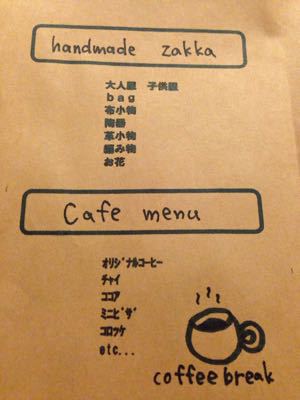 handmade zakka
大人服 子供服
bag
布小物
陶器
革小物
編み物
お花
Cafe menu
ｵﾘｼﾞﾅﾙｺｰﾋｰ
ﾁｬｲ
ｺｺｱ
ﾐﾆﾋﾟｻﾞ
ｺﾛｯｹ
etc...
coffee break